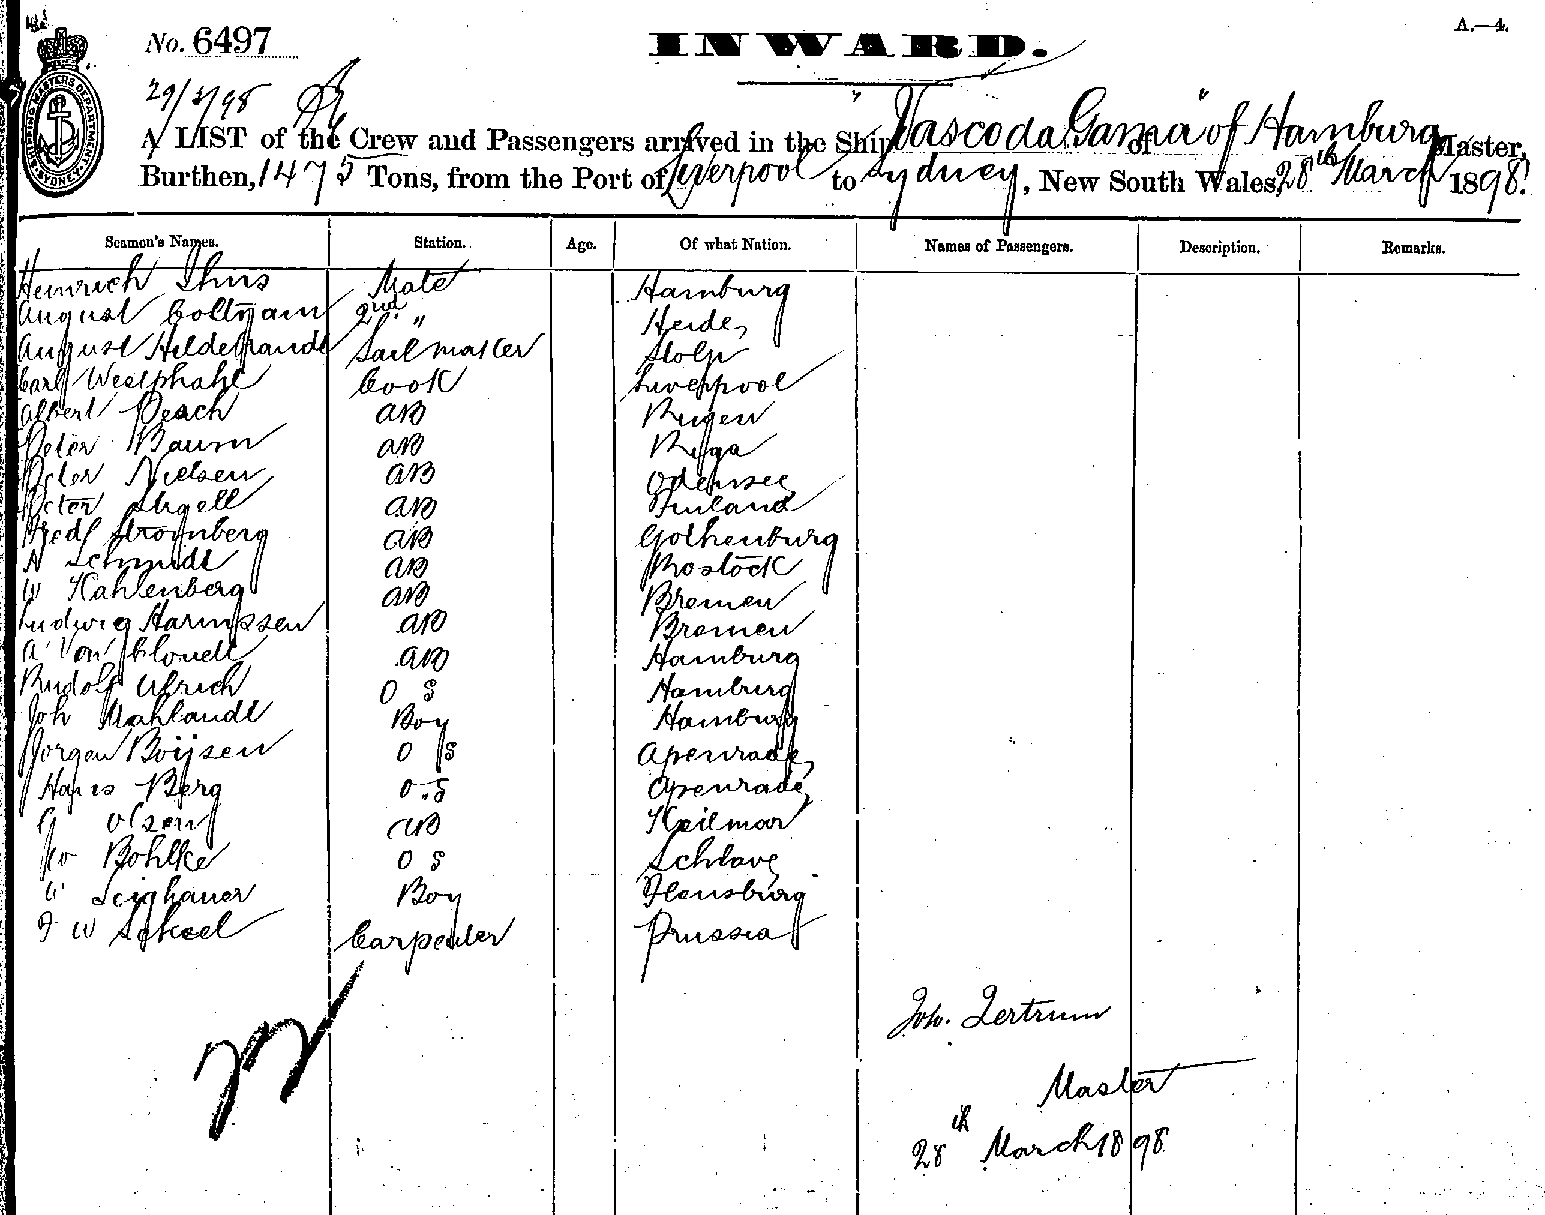 A.—4.
No. 6497
INWARD.
29/3/98
A LIST of the Crew and Passengers arrived in the Ship "Vasco da Gama" of Hamburg Master,
Burthen, 1475 Tons, from the Port of Liverpool to Sydney, New South Wales, 28th March 1898.
Seamen's Names. Station. Age. Of what Nation. Names of Passengers. Description. Remarks.
Heinrich Mate Hamburg
August 2nd " Heide
August Hildebrandt Sailmaker Stolp
Carl Westphahl Cook Liverpool
Albert Peach AB Rugen
Peter Baum AB Riga
Peter Nielsen AB Odensee
Peter AB Finland
Fredf Stromberg AB Gothenburg
A Schmidt AB Rostock
W Kahlenberg AB Bremen
Ludwig Harmssen AB Bremen
A Von AB Hamburg
Rudolf Ulrich O S Hamburg
Joh Mahlandt Boy Hamburg
Jorgen Boijsen O S Apenrade
Hans Berg O.S Apenrade
G Olsen AB
Bohlke O S Schlave
Boy Flensburg
F W Scheel Carpenter Prussia
Joh. Zertrum
Master
28th March 1898